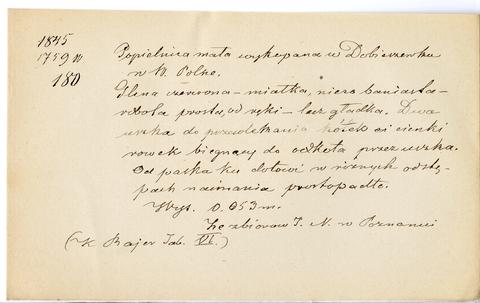 1845
1759 W
180
Popielnica mała wykopana w Dobieszewku
w W. Polsce.
Glina czerwona – miałka, nieco baniasta –
robota prosta, od ręki – lecz gładka. Dwa
uszka do przewlekania kółek ai cienki
rowek biegnący do odkoła przez uszka.
Od paska ku dołowi w różnych odstę-
pach nacinania prostopadłe.
Wys. 0.053 m.
Ze zbiorów T. N. w Poznaniu
(K Bajer Tab. VI.)